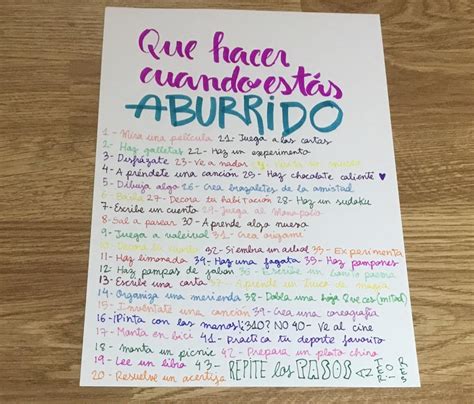 Que hacer
cuando estás
ABURRIDO
1- Mira una película 21- Juega a las cartas
2- Haz galletas 22- Haz un experimento
3- Disfrázate 23- Ve a nadar
4- Apréndete una canción 25- Haz chocolate caliente
5- Dibuja algo 26- Crea brazaletes de la amistad
6- Baila 27- Decora tu habitación 28- Haz un sudoku
7- Escribe un cuento 29- Juega al Monopolio
8- Sal a pasear 30- Aprende algo nuevo
9- Juega a 31- Crea origami
10- Decora tu 32- Siembra un arbol 33- Experimenta
11- Haz limonada 34- Haz una fogata 35- Haz pompones
12- Haz pompas de jabón 36- Escribe un
13- Escribe una carta 37- Aprende un truco de magia
14- Organiza una merienda 38- Dobla una hoja 8 veces (mitad)
15- Invéntate una canción 39- Crea una coreografía
16- ¡Pinta con las manos! ¿310? NO 40- Ve al cine
17- Monta en bici 41- Practica tu deporte favorito
18- monta un picnic 42- Prepara un plato chino
19- Lee un libro 43- REPITE los PASOS
20- Resuelve un acertijo